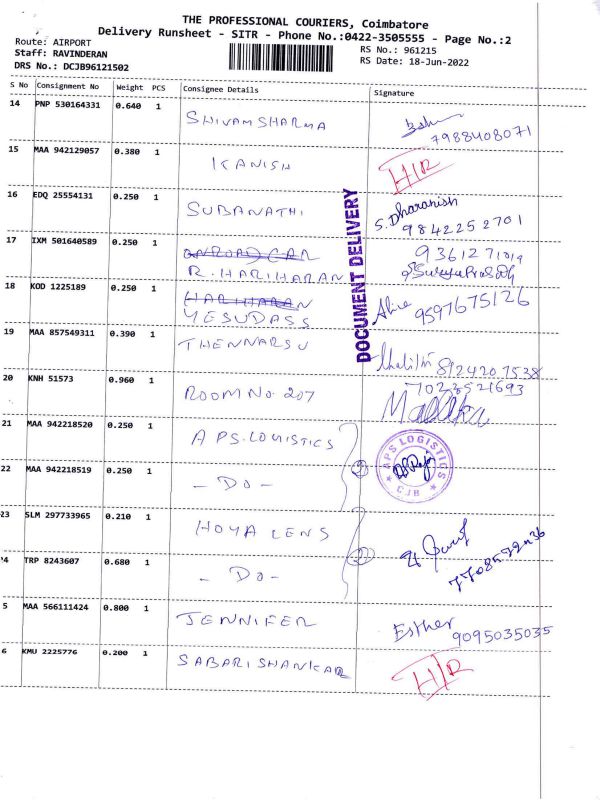 THE PROFESSIONAL COURIERS, Coimbatore
Delivery Runsheet - SITR - Phone No.:0422-3505555 - Page No.:2
Route: AIRPORT
Staff: RAVINDERAN
DRS No.: DCJB96121502
RS No.: 961215
RS Date: 18-Jun-2022
S No Consignment No Weight PCS Consignee Details Signature
14 PNP 530164331 0.640 1 SHIVAM SHARMA
7988408071
15 MAA 942129057 0.380 1 KANISH H/R
16 EDQ 25554131 0.250 1 SUBANATHI S. Dharanish
9842252701
17 IXM 501640589 0.250 1 ONROAD CAR
R. HARIHARAN
18 KOD 1225189 0.250 1 HARIHARAN
YESUDASS 9597675126
DOCUMENT DELIVERY
19 MAA 857549311 0.390 1 THENNARSU 8124207538
20 KNH 51573 0.960 1 ROOM NO. 207 7023521693
Mallika
21 MAA 942218520 0.250 1 APS. LOGISTICS
APS LOGISTICS
CJB
22 MAA 942218519 0.250 1 - DO -
23 SLM 297733965 0.210 1 HOYA LENS
24 TRP 8243607 0.680 1 - DO -
5 MAA 566111424 0.800 1 JENNIFER Esther
9095035035
6 KMU 2225776 0.200 1 SABARI SHANKAR H/R